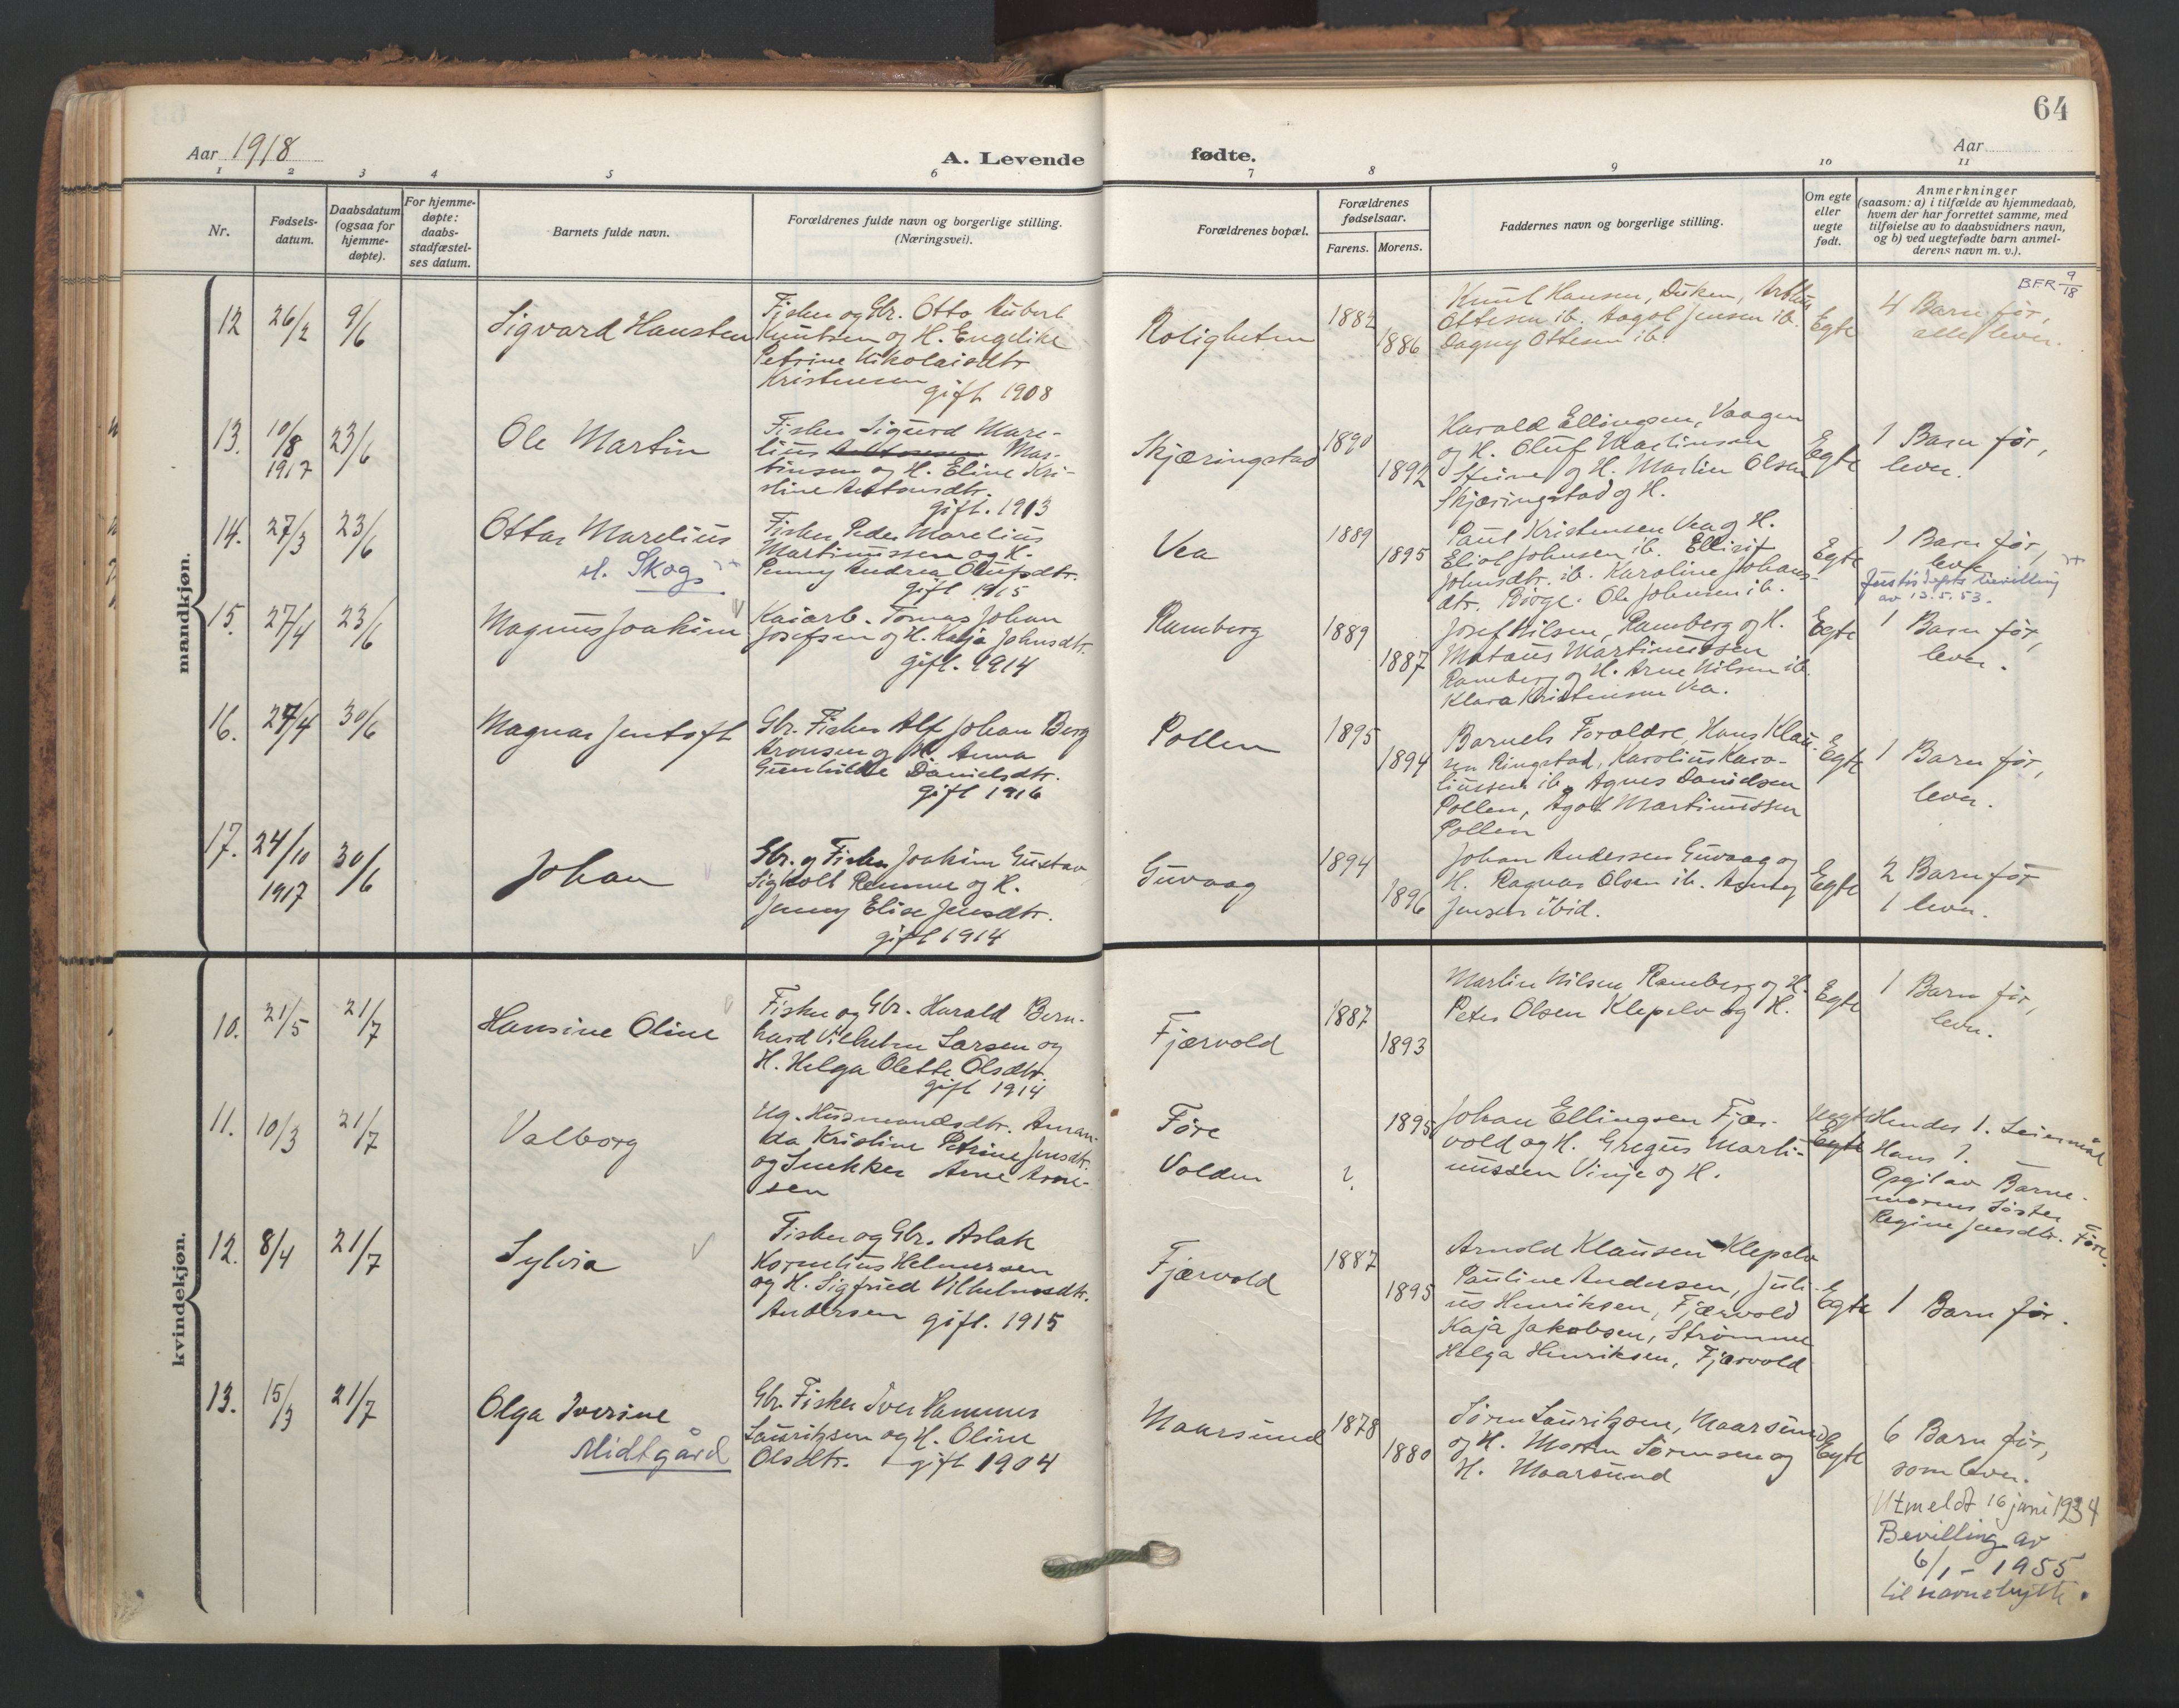 64
Aar 1918
A. Levende
fødte.
Aar
1 2 3 4 5 6 7 8 9 10 11
Nr.
Fødsels-
datum.
Daabsdatum
(ogsaa for
hjemme-
døpte).
For hjemme-
døpte:
daabs-
stadfæstel-
ses datum.
Barnets fulde navn.
Forældrenes fulde navn og borgerlige stilling.
(Næringsvei).
Forældrenes bopæl.
Forældrenes
fødselsaar.
Farens. Morens.
Faddernes navn og borgerlige stilling.
Om egte
eller
uegte
født.
Anmerkninger
(saasom: a) i tilfælde av hjemmedaab,
hvem der har forrettet samme, med
tilføielse av to daabsvidners navn,
og b) ved uegtefødte barn anmel-
derens navn m. v.).
BFR 9/18
mandkjøn.
12 26/2 9/6
Sigvard Hansten
Fisker og Gbr. Otto Hubert
Knutsen og H. Engelike
Petrine Nikolaisdtr.
Kristensen
gift 1908
Roligheten
1882
1886
Knut Hansen, Arthur
Ottesen ib. Aagot Jensen ib.
Dagny Ottesen ib.
Egte
4 Barn før,
alle lever.
13. 10/8 1917 23/6
Ole Martin
Fisker Sigurd Mare-
lius Mar-
tinsen og H. Eline Kri-
stine Antonsdtr.
gift. 1913
Skjæringstad
1890
1892
Harald Ellingsen, Vaagen
og H. Oluf Martinsen
Steine og H. Martin Olsen
Skjæringstad og H.
Egte
1 Barn før,
lever.
14. 27/3 23/6
Ottar Marelius
Skog
Fisker Peder Marelius
Martinussen og H.
Penny Andrea Olufsdtr.
gift 1915
Vea
1889
1895
Paul Kristensen Vea og H.
Eliot Johnsen ib. Ellisif
Johnsdtr. ib. Karoline Johans-
dtr. Børge. Ole Johnsen ib.
Egte
1 Barn før,
lever.
Justisdepts bevilling
av 13.5.53.
15. 27/4 23/6
Magnus Joakim
Kaiarb. Tomas Johan
Josefsen og H. Kaja Johnsdtr.
gift. 1914
Ramberg
1889
1887
Josef Nilsen, Ramberg og H.
Mataus Martinussen
Ramberg og H. Arne Nilsen ib.
Klara Kristensen Vea.
Egte
1 Barn før,
lever.
16. 27/4 30/6
Magnar Jentoft
Gbr. Fisker Alf Johan Berg
Aronsen og H. Anna
Gunhilde Danielsdtr.
gift 1916
Pollen
1895
1894
Barnets Forældre, Hans Klau-
sen Ringstad, Karolius Karo-
liussen ib., Agnes Danielsen
Pollen, Agot Martinussen
Pollen
Egte
1 Barn før,
lever.
17. 24/10 1917 30/6
Johan
Gbr. og Fisker Joakim Gustav
Sigholt Remme og H.
Jenny Elise Jensdtr.
gift 1914
Guvaag
1894
1896
Johan Andersen Guvaag og
H. Ragnar Olsen ib.
Jensen ibid.
Egte
2 Barn før
1 lever.
kvindekjøn.
10. 21/5 21/7
Hansine Oline
Fisker og Gbr. Harald Bern-
hard Vilhelm Larsen og
H. Helga Olette Olsdtr.
gift 1914
Fjærvold
1887
1893
Martin Nilsen Ramberg og H.
Peter Olsen Klepelv og H.
Egte
1 Barn før,
lever.
11. 10/3 21/7
Valborg
Ug. Husmandsdtr. Aman-
da Kristine Petrine Jensdtr.
og Snekker Arne Arne-
sen
Føre
Volden
?
1895
Johan Ellingsen Fjær-
vold og H. Gregus Marti-
nussen Vinje og H.
Uegte
Egte
Hendes 1. Leiermål
Hans 1.
Opgit av Barne-
morens Søster
Regine Jensdtr. Føre.
12. 8/4 21/7
Sylvia
Fisker og Gbr. Aslak
Kornelius Helmersen
og H. Sigfried Vilhelmsdtr.
Andersen gift. 1915
Fjærvold
1887
1895
Arnold Klausen Klepelv
Pauline Andersen, Juli-
us Henriksen, Fjærvold
Kaja Jakobsen, Strømme
Helga Henriksen, Fjærvold
Egte
1 Barn før.
13. 15/3 21/7
Olga Iverine
Midtgård
Gbr. Fisker Iver Hammer
Lauritzen og H. Oline
Olsdtr. gift 1904
Maarsund
1878
1880
Søren Lauritzsen, Maarsund
og H. Morten Sørensen og
H. Maarsund
Egte
6 Barn før,
som lever.
Utmeldt 16 juni 1934
Bevilling av
6/1 - 1955
til navnebytte.